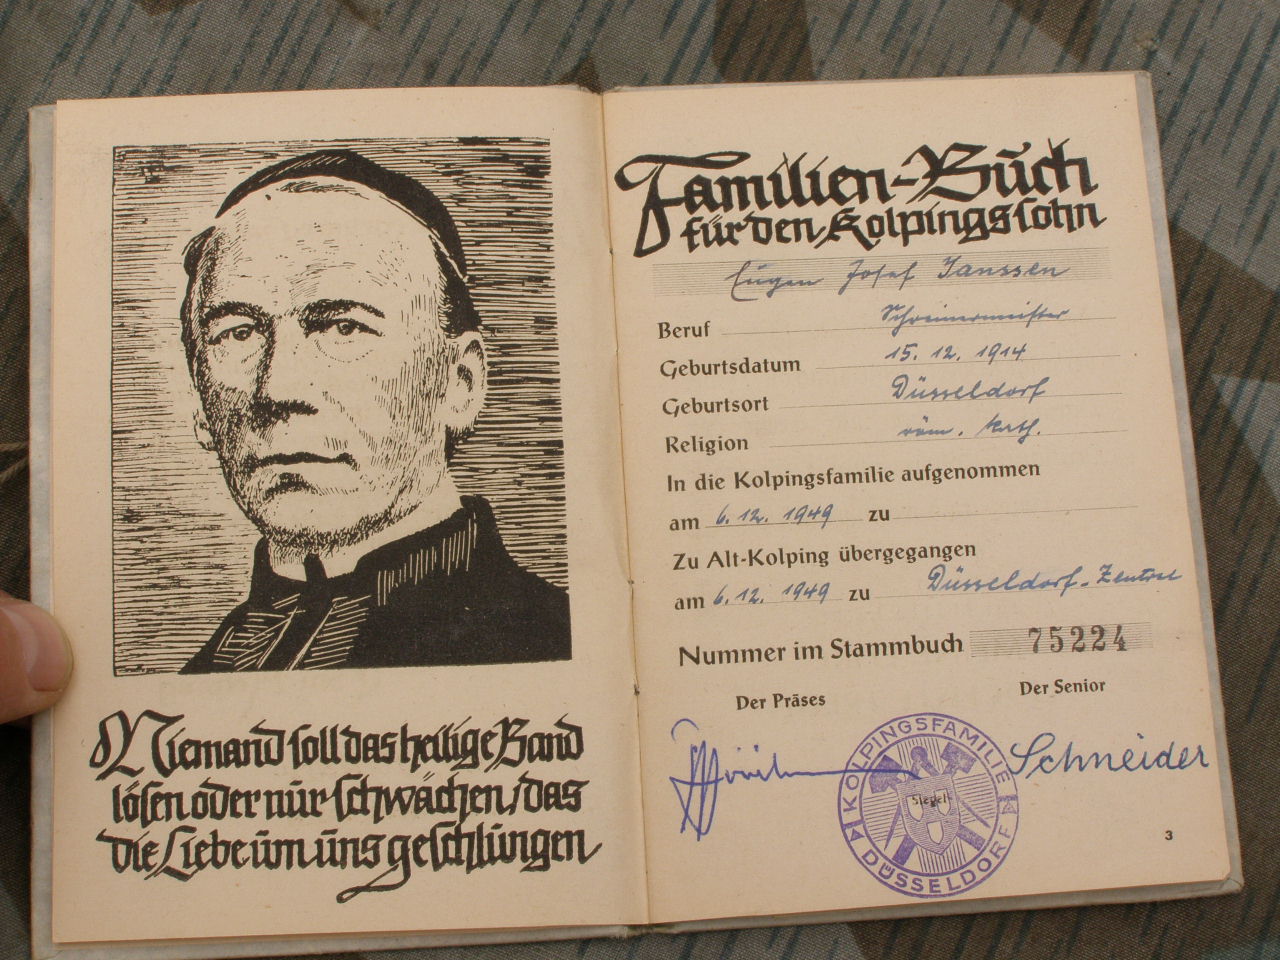 Niemand soll das heilige Band
lösen oder nur schwächen, das
die Liebe um uns geschlungen
Familien-Buch
für den Kolpingssohn
Eugen Josef Janssen
Beruf Schreinermeister
Geburtsdatum 15. 12. 1914
Geburtsort Düsseldorf
Religion röm. kath.
In die Kolpingsfamilie aufgenommen
am 6. 12. 1949 zu
Zu Alt-Kolping übergegangen
am 6. 12. 1949 zu Düsseldorf-Zentral
Nummer im Stammbuch 75224
Der Präses Der Senior
Schneider
KOLPINGSFAMILIE
Siegel
DÜSSELDORF
3